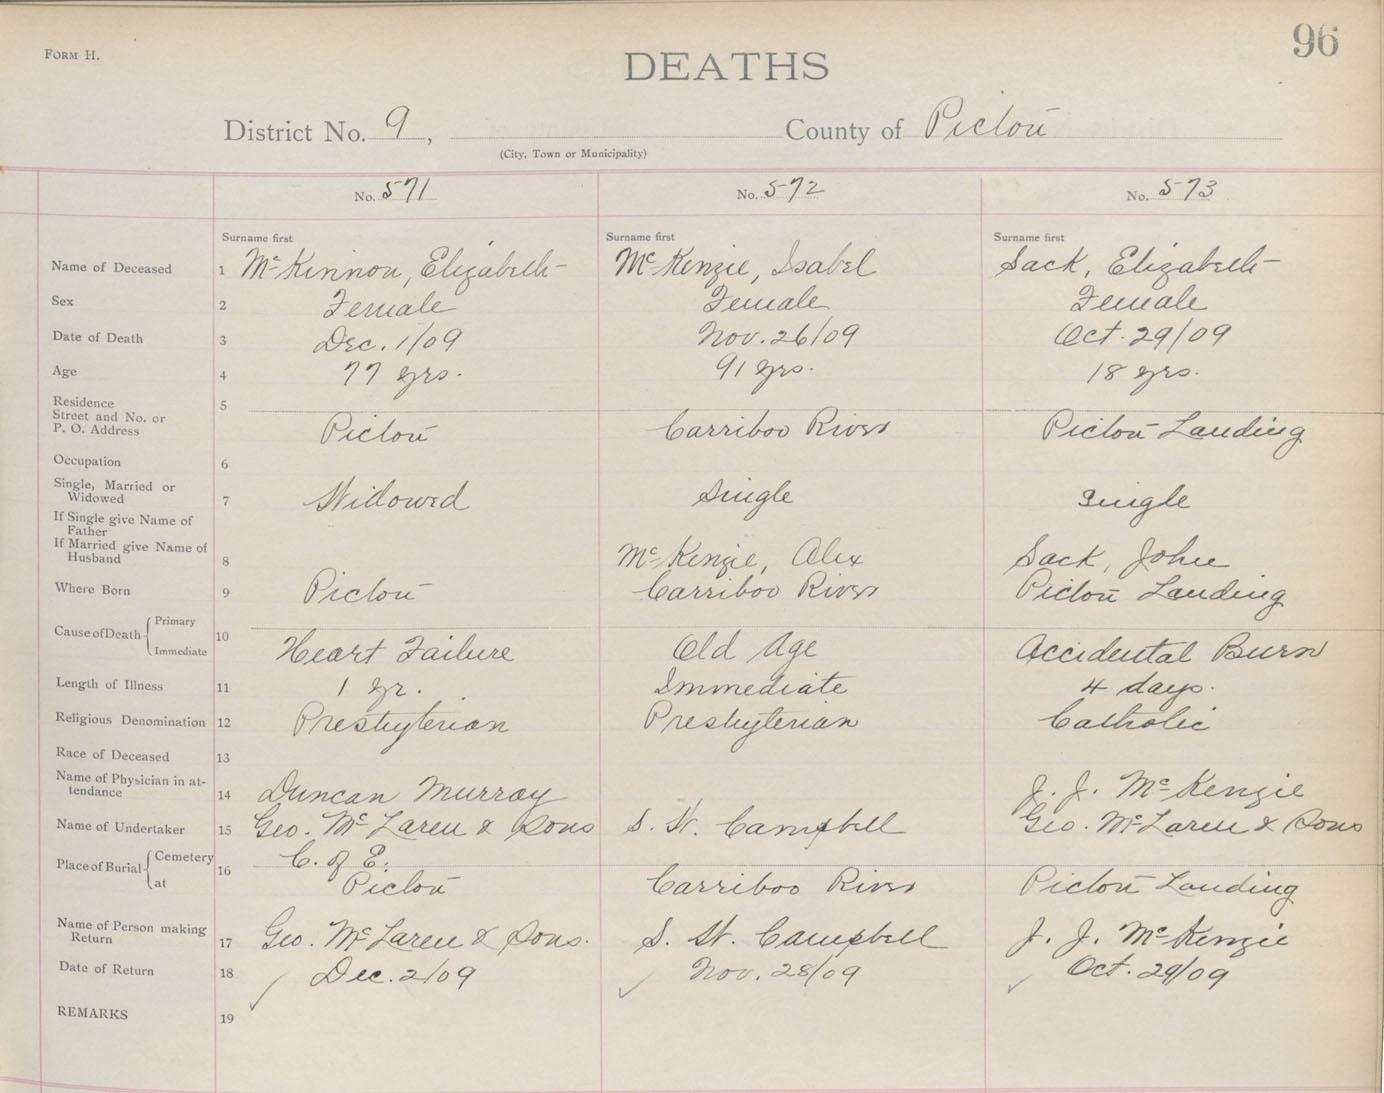 96
FORM H.
DEATHS
District No. 9, County of Pictou
(City, Town or Municipality)
No. 571 No. 572 No. 573
Surname first Surname first Surname first
Name of Deceased 1 McKinnon, Elizabeth McKenzie, Isabel Sack, Elizabeth
Sex 2 Female Female Female
Date of Death 3 Dec. 1/09 Nov. 26/09 Oct. 29/09
Age 4 77 yrs. 91 yrs. 18 yrs.
Residence 5
Street and No. or
P. O. Address Pictou Carriboo River Pictou Landing
Occupation 6
Single, Married or
Widowed 7 Widowed Single Single
If Single give Name of
Father
If Married give Name of
Husband 8 McKenzie, Alex Sack, John
Where Born 9 Pictou Carriboo River Pictou Landing
Cause of Death { Primary
Immediate 10 Heart Failure Old Age Accidental Burn
Length of Illness 11 1 yr. Immediate 4 days.
Religious Denomination 12 Presbyterian Presbyterian Catholic
Race of Deceased 13
Name of Physician in at-
tendance 14 Duncan Murray J. J. McKenzie
Name of Undertaker 15 Geo. McLaren & Sons S. W. Campbell Geo. McLaren & Sons
Place of Burial { Cemetery 16 C. of E.
at Pictou Carriboo River Pictou Landing
Name of Person making
Return 17 Geo. McLaren & Sons. S. W. Campbell J. J. McKenzie
Date of Return 18 Dec. 2/09 Nov. 28/09 Oct. 29/09
REMARKS 19